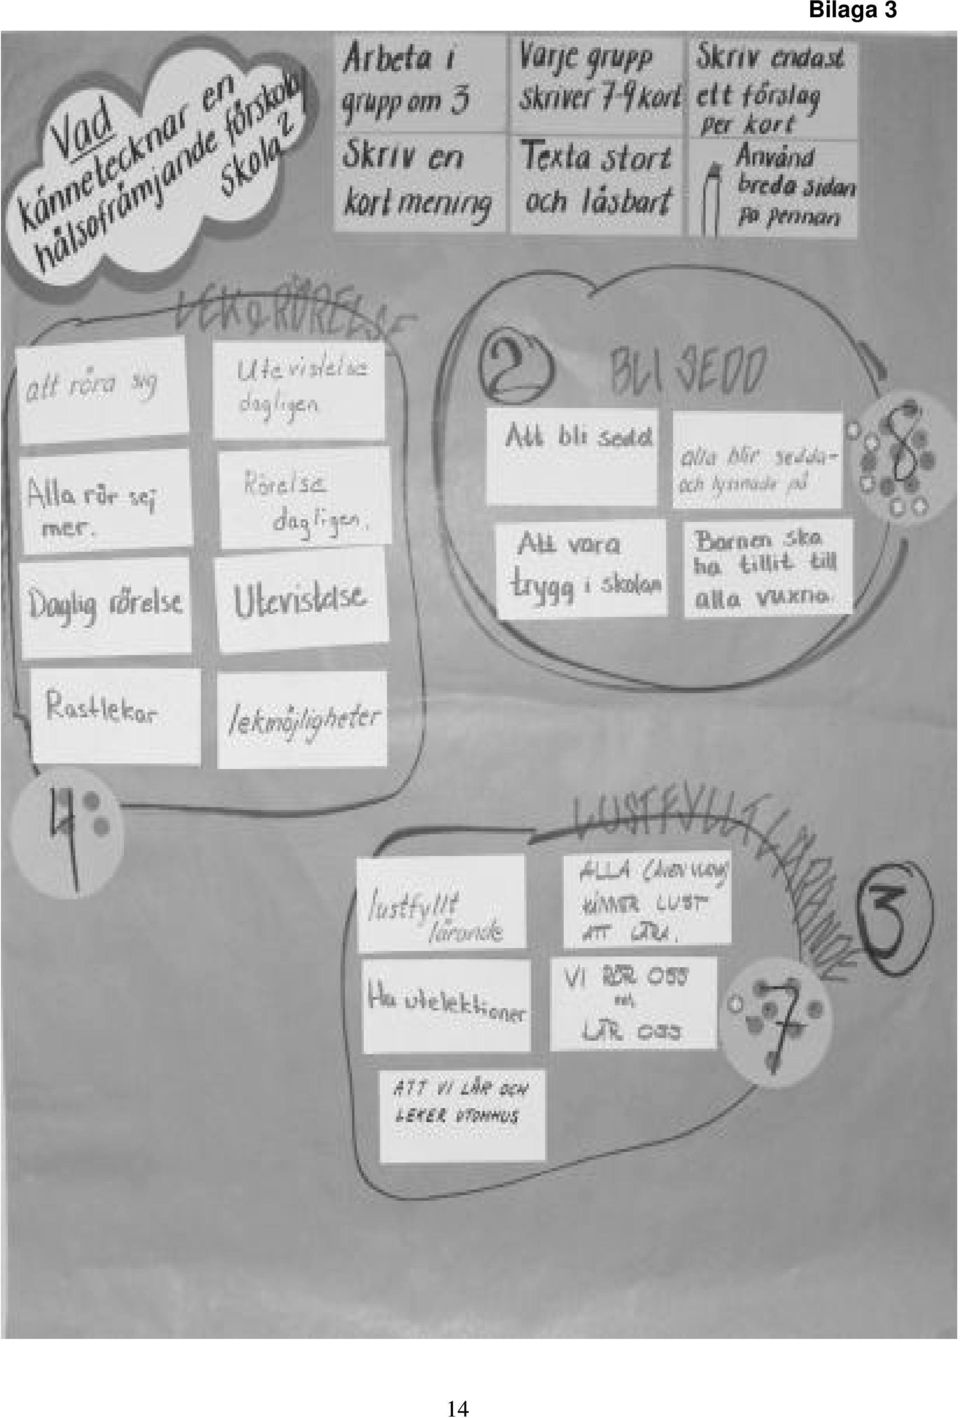 Bilaga 3
Vad
kännetecknar en
hälsofrämjande förskola/
skola?
Arbeta i
grupp om 3
Varje grupp
skriver 7-9 kort
Skriv endast
ett förslag
per kort
Skriv en
kort mening
Texta stort
och läsbart
Använd
breda sidan
på pennan
LEK & RÖRELSE
att röra sig
Utevistelse
dagligen
Alla rör sej
mer.
Rörelse
dagligen.
Daglig rörelse
Utevistelse
Rastlekar
lekmöjligheter
4
2
BLI SEDD
Att bli sedd
alla blir sedda
och lyssnade på
Att vara
trygg i skolan
Barnen ska
ha tillit till
alla vuxna
8
LUSTFYLLT LÄRANDE
3
lustfyllt
lärande
ALLA (ÄVEN
KÄNNER LUST
ATT LÄRA.
Ha utelektioner
VI RÖR OSS
och
LÄR OSS
ATT VI LÄR OCH
LEKER UTOMHUS
7
14